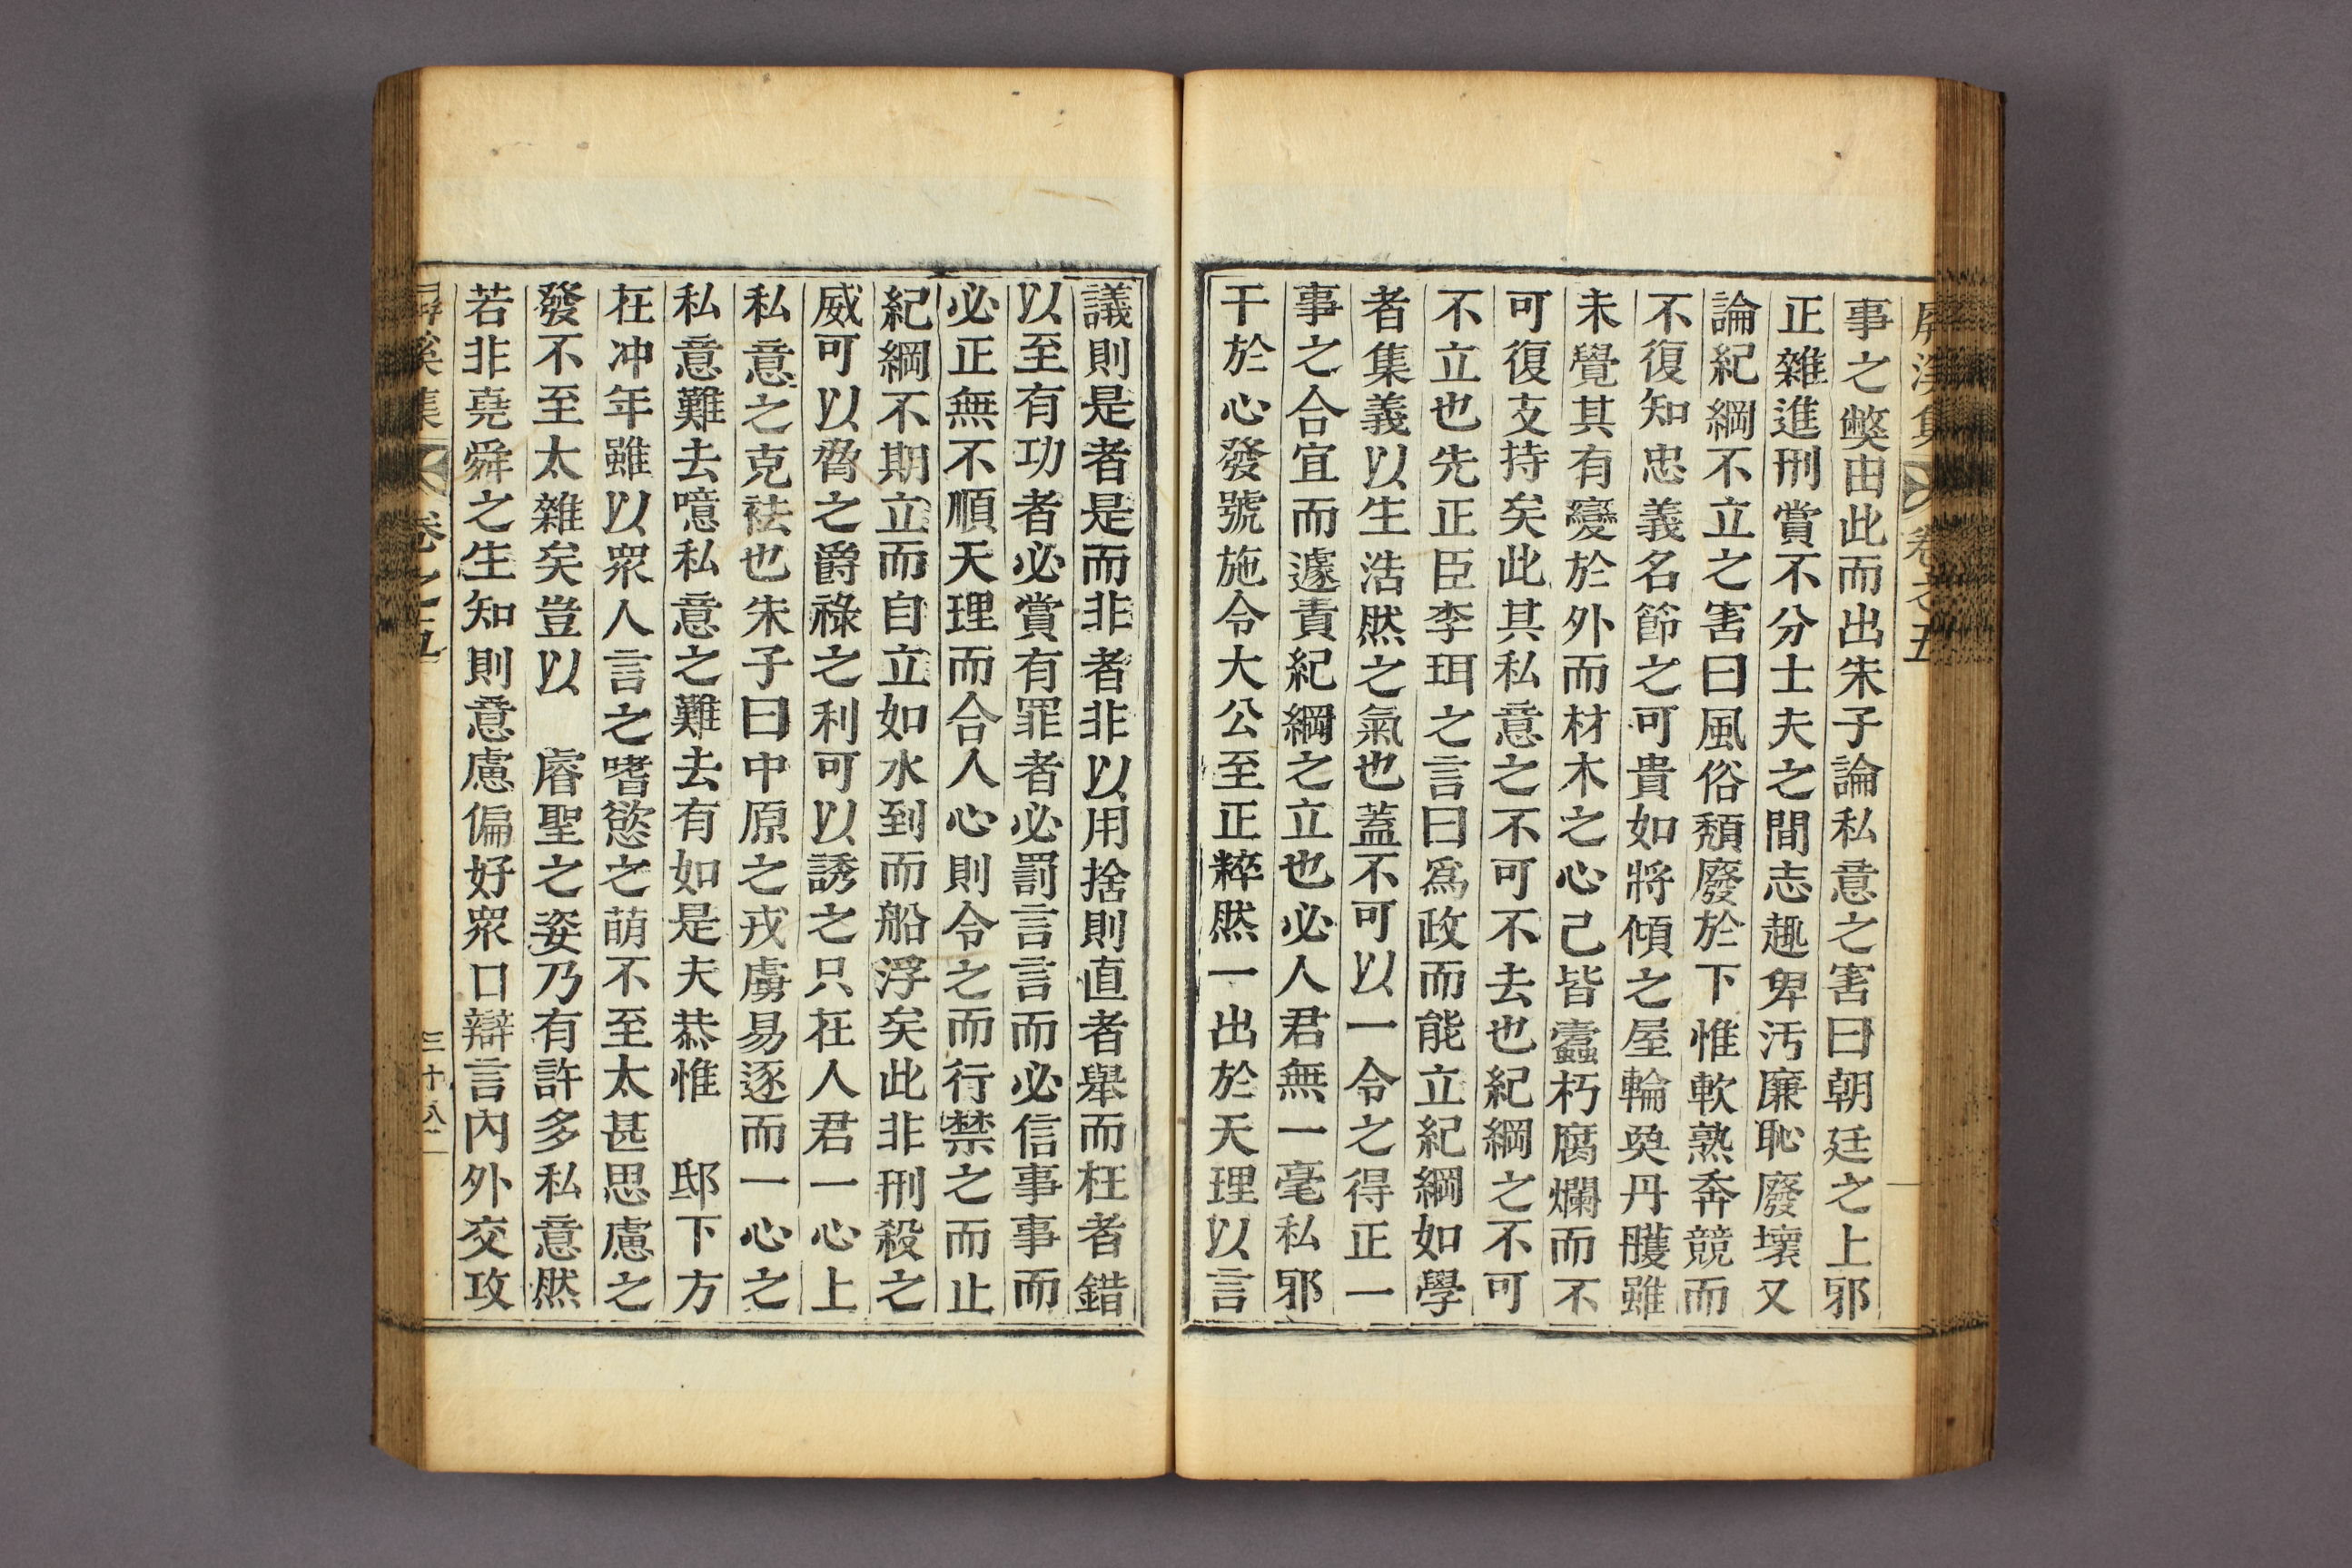 屏溪集 卷之五
事之弊由此而出朱子論私意之害曰朝廷之上邪
正雜進刑賞不分士夫之間志趣卑汚廉恥廢壞又
論紀綱不立之害曰風俗頹廢於下惟軟熟奔競而
不復知忠義名節之可貴如將傾之屋輪奐丹雘雖
未覺其有變於外而材木之心已皆蠹朽腐爛而不
可復支持矣此其私意之不可不去也紀綱之不可
不立也先正臣李珥之言曰爲政而能立紀綱如學
者集義以生浩然之氣也蓋不可以一令之得正一
事之合宜而遽責紀綱之立也必人君無一毫私邪
干於心發號施令大公至正粹然一出於天理以言
議則是者是而非者非以用捨則直者舉而枉者錯
以至有功者必賞有罪者必罰言言而必信事事而
必正無不順天理而合人心則令之而行禁之而止
紀綱不期立而自立如水到而船浮矣此非刑殺之
威可以脅之爵祿之利可以誘之只在人君一心上
私意之克祛也朱子曰中原之戎虜易逐而一心之
私意難去噫私意之難去有如是夫恭惟　邸下方
在冲年雖以衆人言之嗜慾之萌不至太甚思慮之
發不至太雜矣豈以　睿聖之姿乃有許多私意然
若非堯舜之生知則意慮偏好衆口辯言內外交攻
屏溪集 卷之五 三十八